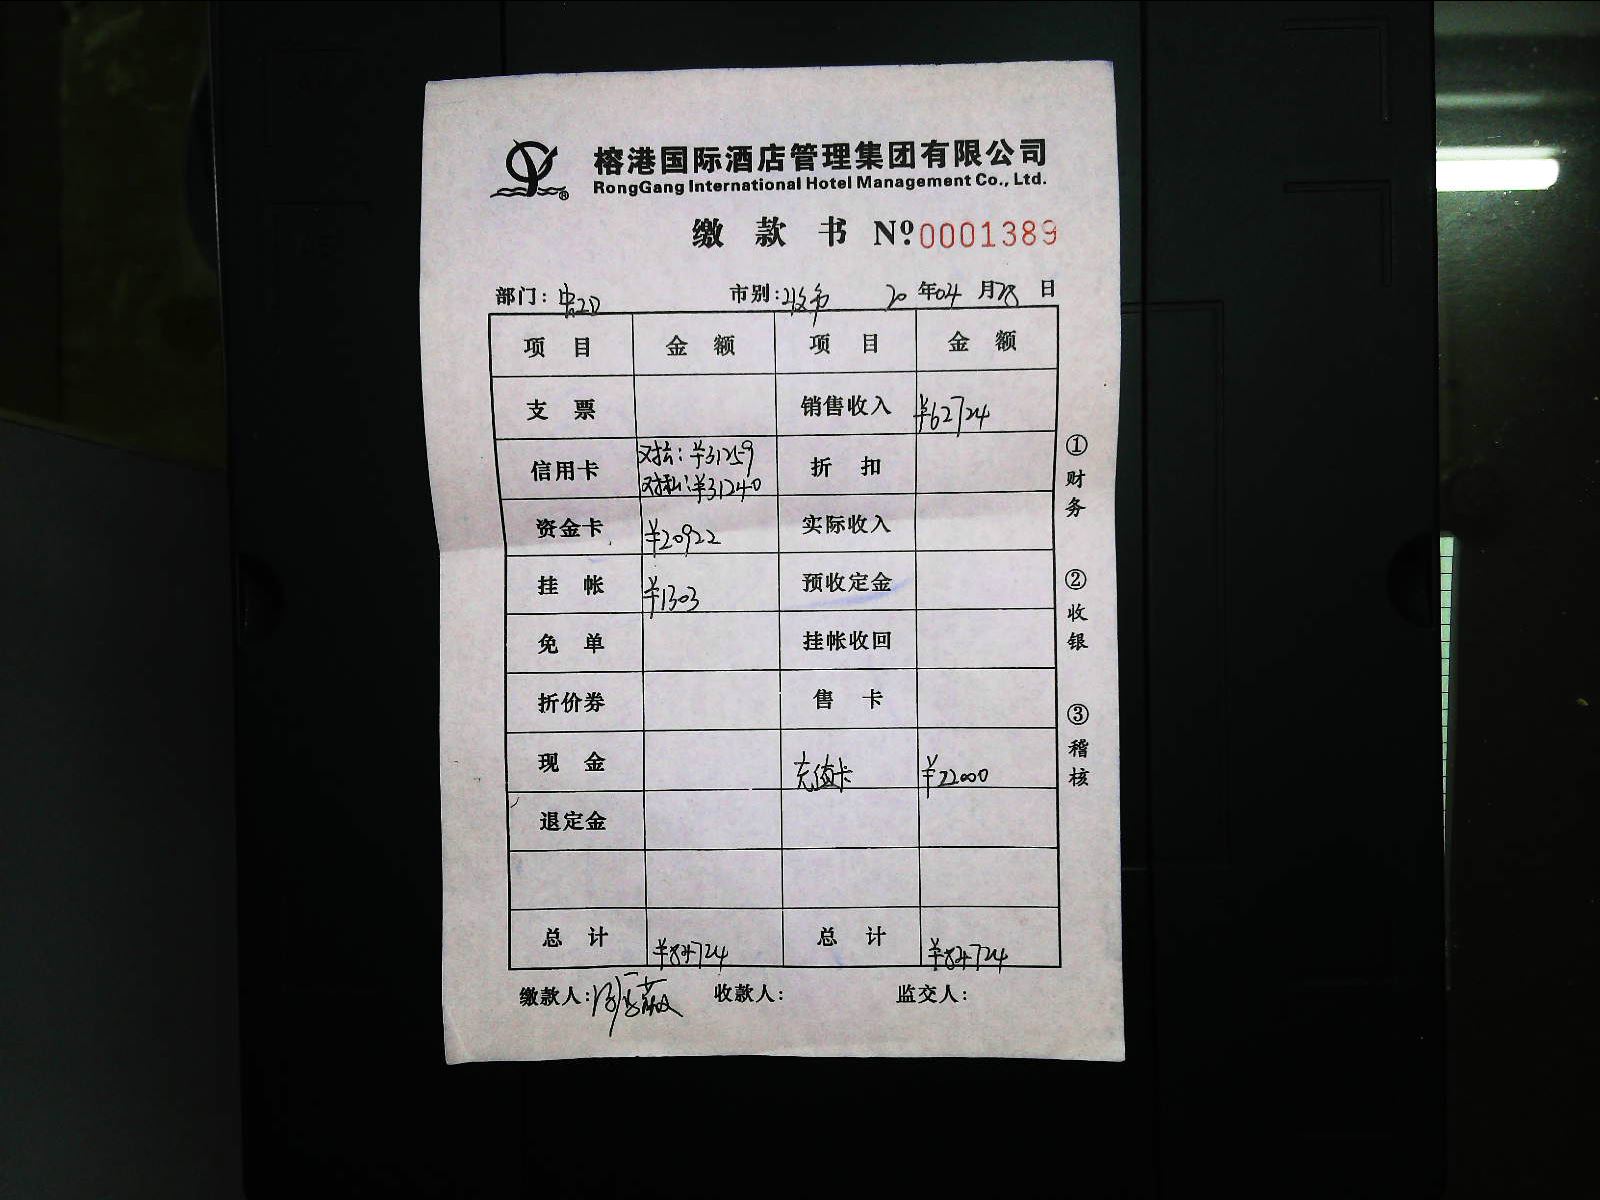 榕港国际酒店管理集团有限公司
RongGang International Hotel Management Co., Ltd.
缴款书 Nº 0001389
部门: 市别: 20 年04 月28 日
项目 金额 项目 金额
支票 销售收入 ¥62724
信用卡 对公: ¥31259 折扣
对私: ¥31240
资金卡 ¥20922 实际收入
挂帐 ¥1303 预收定金
免单 挂帐收回
折价券 售卡
现金 充值卡 ¥22000
退定金
总计 ¥84724 总计 ¥84724
缴款人: 收款人: 监交人:
①财务
②收银
③稽核